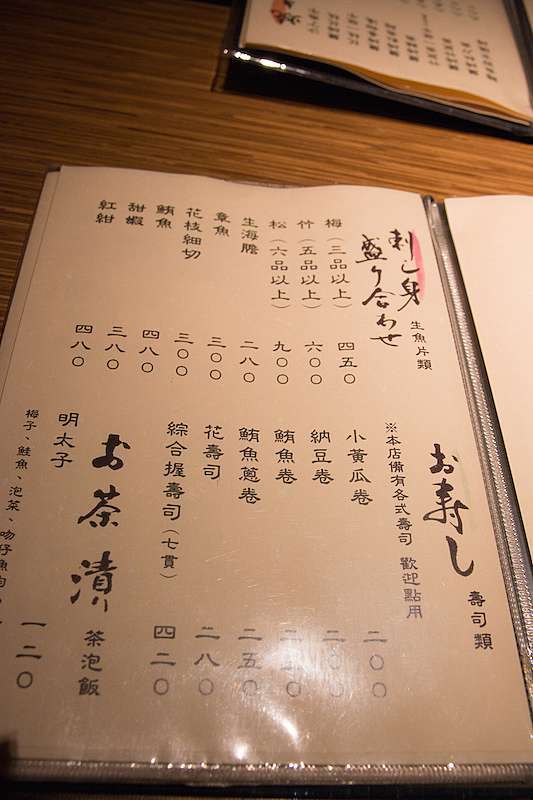 刺し身
盛り合わせ 生魚片類
梅（三品以上） 四五〇
竹（五品以上） 六〇〇
松（六品以上） 九〇〇
生海膽 二八〇
章魚 三〇〇
花枝細切 三〇〇
鮪魚 四八〇
甜蝦 三八〇
紅魽 四八〇
お寿し 壽司類
※本店備有各式壽司 歡迎點用
小黃瓜卷 二〇〇
納豆卷 二〇〇
鮪魚卷
鮪魚蔥卷 二五〇
花壽司 二八〇
綜合握壽司（七貫） 四二〇
お茶漬 茶泡飯
明太子
梅子、鮭魚、泡菜、吻仔魚 一二〇